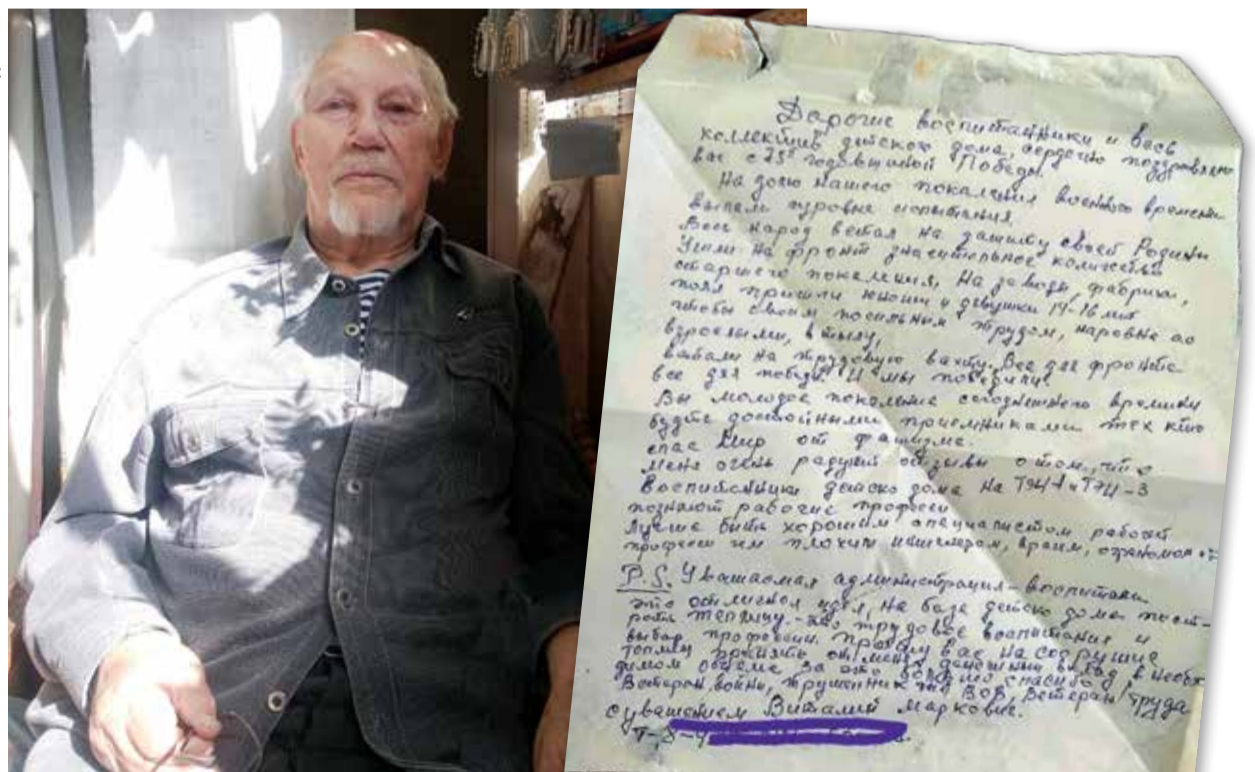 Дорогие воспитанники и весь
коллектив детского дома, сердечно поздравляю
вас с 75й годовщиной Победы
На долю нашего покаления военного времени
выпали суровые испытания
Весь народ встал на защиту своей Родины
Ушли на фронт значительное количество
старшего покаления, На заводы, фабрики,
поля пришли юноши и девушки 14-16 лет
чтобы своим посильным трудом, наровне со
взрослыми, в тылу,
встали на трудовую вахту. Все для фронта
все для победы. И мы победили!
Вы молодое покаление сегодняшнего времени
будте достойными приемниками тех кто
спас Мир от фашизма.
меня очень радуют отзывы о том, что
Воспитанники детско дома на ТЭЦ-1 и ТЭЦ-3
познают рабочие професси
Лучше быть хорошим специалистом рабочей
професси чем плохим инженером, врачом,
P.S. Уважаемая администрация - воспитатели
это отличная идея, на базе детско дома пост-
роить теплицу. - это трудовое воспитания и
выбор професси. Прошу вас на сооружие
теплиц принять от меня денежный вклад в необх
димом объеме за это большое спасибо
Ветеран войны, труженник тыл ВОВ, Ветеран труда
с уважением Виталий Маркович.